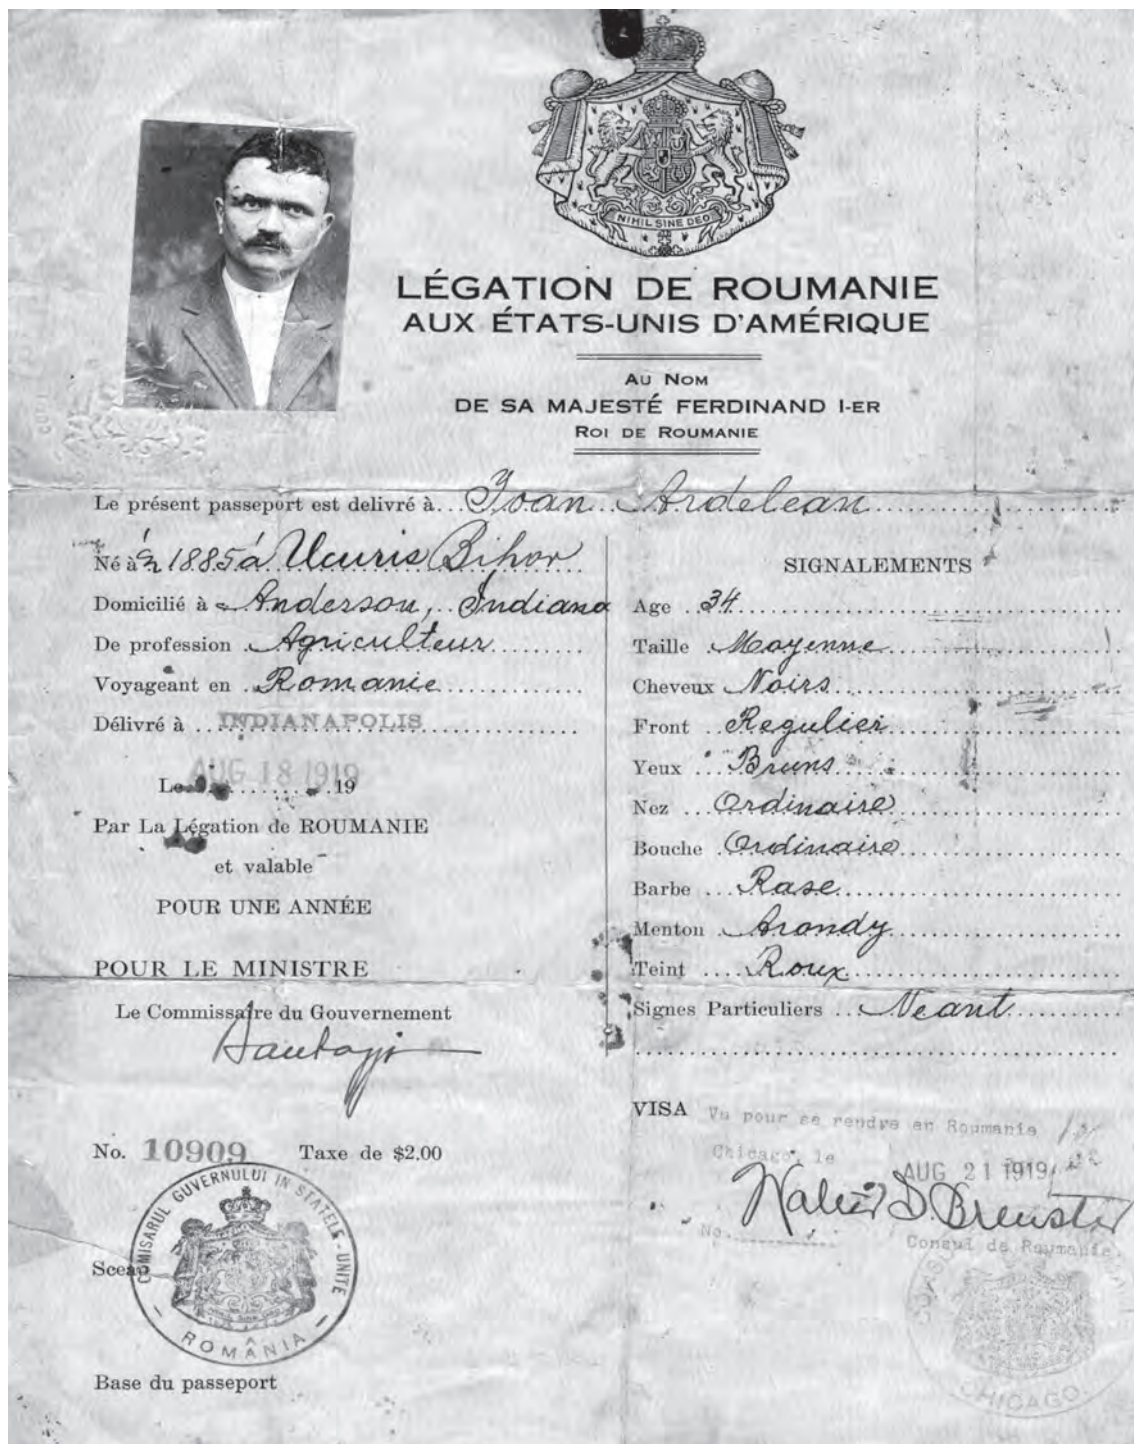 NIHIL SINE DEO
LÉGATION DE ROUMANIE
AUX ÉTATS-UNIS D'AMÉRIQUE
AU NOM
DE SA MAJESTÉ FERDINAND I-ER
ROI DE ROUMANIE
Le présent passeport est delivré à Ioan Ardelean
Né à 1885 à Ucuris Bihor
Domicilié à Anderson, Indiana
De profession Agriculteur
Voyageant en Romanie
Délivré à INDIANAPOLIS
AUG 18 1919
Le 19
Par La Légation de ROUMANIE
et valable
POUR UNE ANNÉE
POUR LE MINISTRE
Le Commissaire du Gouvernement
No. 10909 Taxe de $2.00
COMISARUL GUVERNULUI IN STATELE-UNITE
ROMÂNIA
Sceau
Base du passeport
SIGNALEMENTS
Age 34
Taille Moyenne
Cheveux Noirs
Front Regulier
Yeux Bruns
Nez Ordinaire
Bouche Ordinaire
Barbe Rase
Menton Arondy
Teint Roux
Signes Particuliers Neant
VISA Vu pour se rendre en Roumanie
Chicago, le AUG 21 1919
No.
Consul de Roumanie.
CHICAGO